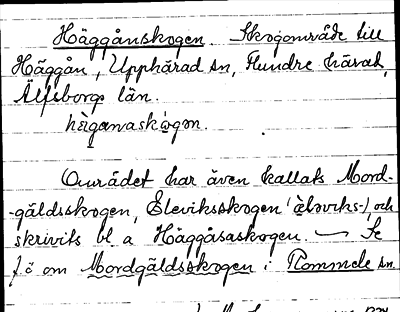 Häggånskogen. Skogområde till
Häggån, Upphärad sn, Flundre härad,
Älfsborgs län.
hæ̀ganaskògon.
Området har även kallats Mord-
-gäldsskogen, Eleviksskogen (èləviks-), och
skrivits bl. a Häggåsaskogen. — Se
f. ö om Mordgäldsskogen i Rommele sn.